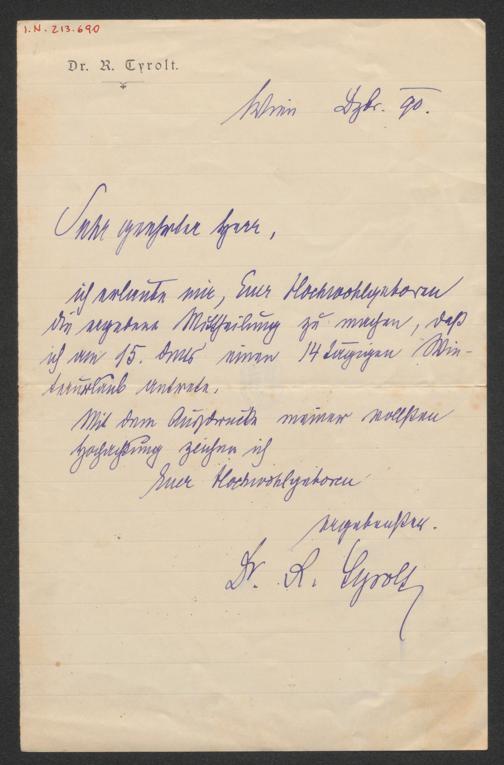 I.N. 213.690
Dr. R. Tyrolt.
Wien Dzbr. 90.
Sehr geehrter Herr,
ich erlaube mir, Euer Hochwohlgeboren
die ergebene Mittheilung zu machen, daß
ich am 15. dMts einen 14 tägigen Win-
terurlaub antrete.
Mit dem Ausdrucke meiner vollsten
Hochachtung zeichne ich
Euer Hochwohlgeboren
ergebenster.
Dr. R. Tyrolt